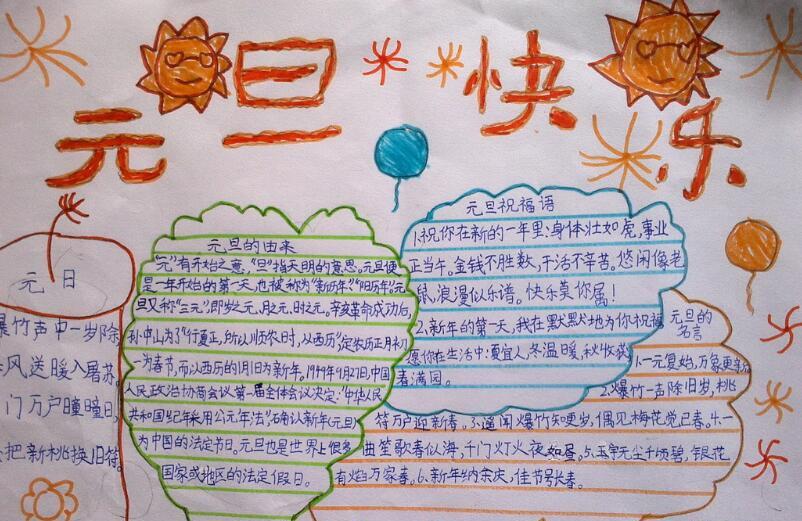 元旦快乐
元日
爆竹声中一岁除
风送暖入屠苏。
门万户曈曈日,
把新桃换旧符。
元旦的由来
“元”有开始之意,“旦”指天明的意思。元旦便
是一年开始的第一天,也被称为“新历年”“阳历年”。元
旦又称“三元”,即岁之元、月之元、时之元。辛亥革命成功后,
孙中山为了“行夏正,所以顺农时,从西历”,定农历正月初
一为春节,而以西历的1月1日为新年。1949年9月27日,中国
人民政治协商会议第一届全体会议决定:“中华人民
共和国纪年采用公元年法”,确认新年(元旦)
为中国的法定节日。元旦也是世界上很多
国家或地区的法定假日。
元旦祝福语
1.祝你在新的一年里:身体壮如虎,事业
正当午。金钱不胜数,干活不辛苦。悠闲像老
鼠,浪漫似乐谱。快乐美你属!
2.新年的第一天,我在默默地为你祝福
愿你在生活中:夏宜人,冬温暖,秋收获
春满园。
元旦的
名言
1.一元复始,万象更新
2.爆竹一声除旧岁,桃
符万户迎新春。3.遥闻爆竹知更岁,偶见梅花觉已春。4.一
曲笙歌春似海,千门灯火夜如昼。5.玉宇无尘千顷碧,银花
有焰万家春。6.新年纳余庆,佳节号长春。